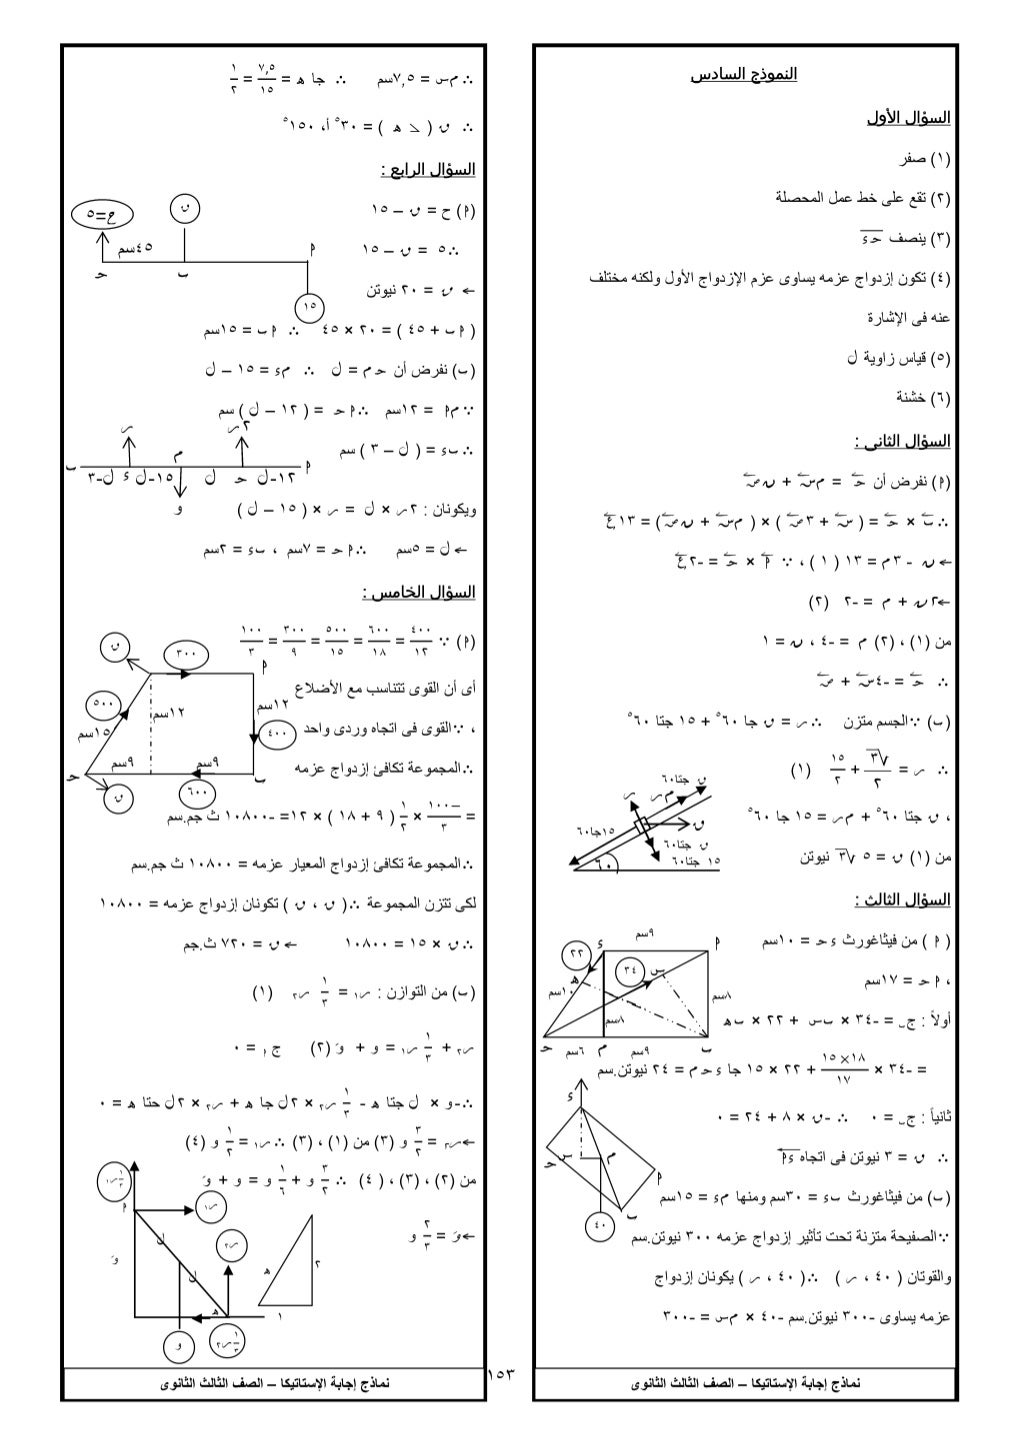 النموذج السادس
السؤال الأول
(١) صفر
(٢) تقع على خط عمل المحصلة
(٣) ينصف حـ ء
(٤) تكون إزدواج عزمه يساوى عزم الإزدواج الأول ولكنه مختلف
عنه فى الإشارة
(٥) قياس زاوية ل
(٦) خشنة
السؤال الثانى :
(أ) نفرض أن حـ = م س + ن ص
∴ ب × حـ = ( س + ٣ ص ) × ( م س + ن ص ) = ١٣ ع
← ن - ٣ م = ١٣ (١) ، ∵ أ × حـ = -٢ ع
← ٢ ن + م = -٢ (٢)
من (١) ، (٢) م = -٤ ، ن = ١
∴ حـ = -٤ س + ص
(ب) ∵ الجسم متزن ∴ ر = ق جا ٦٠° + ١٥ جتا ٦٠°
∴ ر = √٣/٢ + ١٥/٢ (١)
، ق جتا ٦٠° + م ر = ١٥ جا ٦٠°
من (١) ق = ٥ √٣ نيوتن
ق جتا٦٠
ر
م ر
١٥جا٦٠
ق
ق جتا٦٠
١٥ جتا٦٠
٦٠
السؤال الثالث :
( أ ) من فيثاغورث ء حـ = ١٠سم
، أ حـ = ١٧سم
أولاً : جـ ب = -٣٤ × ب س + ٢٢ × ب هـ
= -٣٤ × ١٨×١٥/١٧ + ٢٢ × ١٥ جا ء حـ م = ٢٤ نيوتن.سم
ثانياً : جـ ب = ٠ ∴ -ق × ٨ + ٢٤ = ٠
∴ ق = ٣ نيوتن فى اتجاه ء أ
٩سم
أ
ء
٢٢
٣٤
س
هـ
١٠سم
٨سم
٨سم
حـ
٦سم
م
٩سم
ب
(ب) من فيثاغورث ب ء = ٣٠سم ومنها م ء = ١٥سم
∵ الصفيحة متزنة تحت تأثير إزدواج عزمه ٣٠٠ نيوتن.سم
والقوتان ( ٤٠ ، ر ) ∴ ( ٤٠ ، ر ) يكونان إزدواج
عزمه يساوى -٣٠٠ نيوتن.سم -٤٠ × م س = -٣٠٠
ء
حـ
س
م
أ
ب
٤٠
نماذج إجابة الإستاتيكا – الصف الثالث الثانوى
١٥٣
∴ م س = ٧,٥سم ∴ جا هـ = ٧,٥/١٥ = ١/٢
∴ ق ( ∠ هـ ) = ٣٠° أ، ١٥٠°
السؤال الرابع :
(أ) ح = ق – ١٥
∴ ٥ = ق – ١٥
← ق = ٢٠ نيوتن
( أ ب + ٤٥ ) = ٢٠ × ٤٥ ∴ أ ب = ١٥سم
ح=٥
ق
٤٥سم
أ
حـ
ب
١٥
(ب) نفرض أن حـ م = ل ∴ م ء = ١٥ – ل
∵ م أ = ١٢سم ∴ أ حـ = ( ١٢ – ل ) سم
∴ ب ء = ( ل – ٣ ) سم
ويكونان : ٢ر × ل = ر × ( ١٥ – ل )
← ل = ٥سم ∴ أ حـ = ٧سم ، ب ء = ٢سم
ر
٢ر
م
أ
ب
١٢-ل حـ ل ١٥-ل ء ل-٣
و
السؤال الخامس :
(أ) ∵ ٤٠٠/١٢ = ٦٠٠/١٨ = ٥٠٠/١٥ = ٣٠٠/٩ = ١٠٠/٣
أى أن القوى تتناسب مع الأضلاع
، ∵ القوى فى اتجاه وردى واحد
∴ المجموعة تكافئ إزدواج عزمه
= -١٠٠/٣ × ١/٢ ( ٩ + ١٨ ) × ١٢ = -١٠٨٠٠ ث جم.سم
∴ المجموعة تكافئ إزدواج المعيار عزمه = ١٠٨٠٠ ث جم.سم
لكى تتزن المجموعة ∴ ( ق ، ق ) تكونان إزدواج عزمه = ١٠٨٠٠
∴ ق × ١٥ = ١٠٨٠٠ ← ق = ٧٢٠ ث.جم
ق
٣٠٠
أ
٥٠٠
١٢سم
١٢سم
٤٠٠
١٥سم
٩سم
٩سم
حـ
ب
ق
٦٠٠
(ب) من التوازن : ر١ = ١/٣ ر٢ (١)
ر٢ + ١/٣ ر١ = و + وَ (٢) ج أ = ٠
∴ -و × ل جتا هـ - ١/٣ ر٢ × ٢ل جا هـ + ر٢ × ٢ل حتا هـ = ٠
← ر٢ = ٣/٢ و (٣) من (١) ، (٣) ∴ ر١ = ١/٢ و (٤)
من (٢) ، (٣) ، ( ٤) ∴ ٣/٢ و + ١/٦ و = و + وَ
← وَ = ٢/٣ و
١/٣ر١
أ
ر١
ل
ر٢
ل
وَ
هـ
و
١/٣ر٢
هـ
٢
١
نماذج إجابة الإستاتيكا – الصف الثالث الثانوى